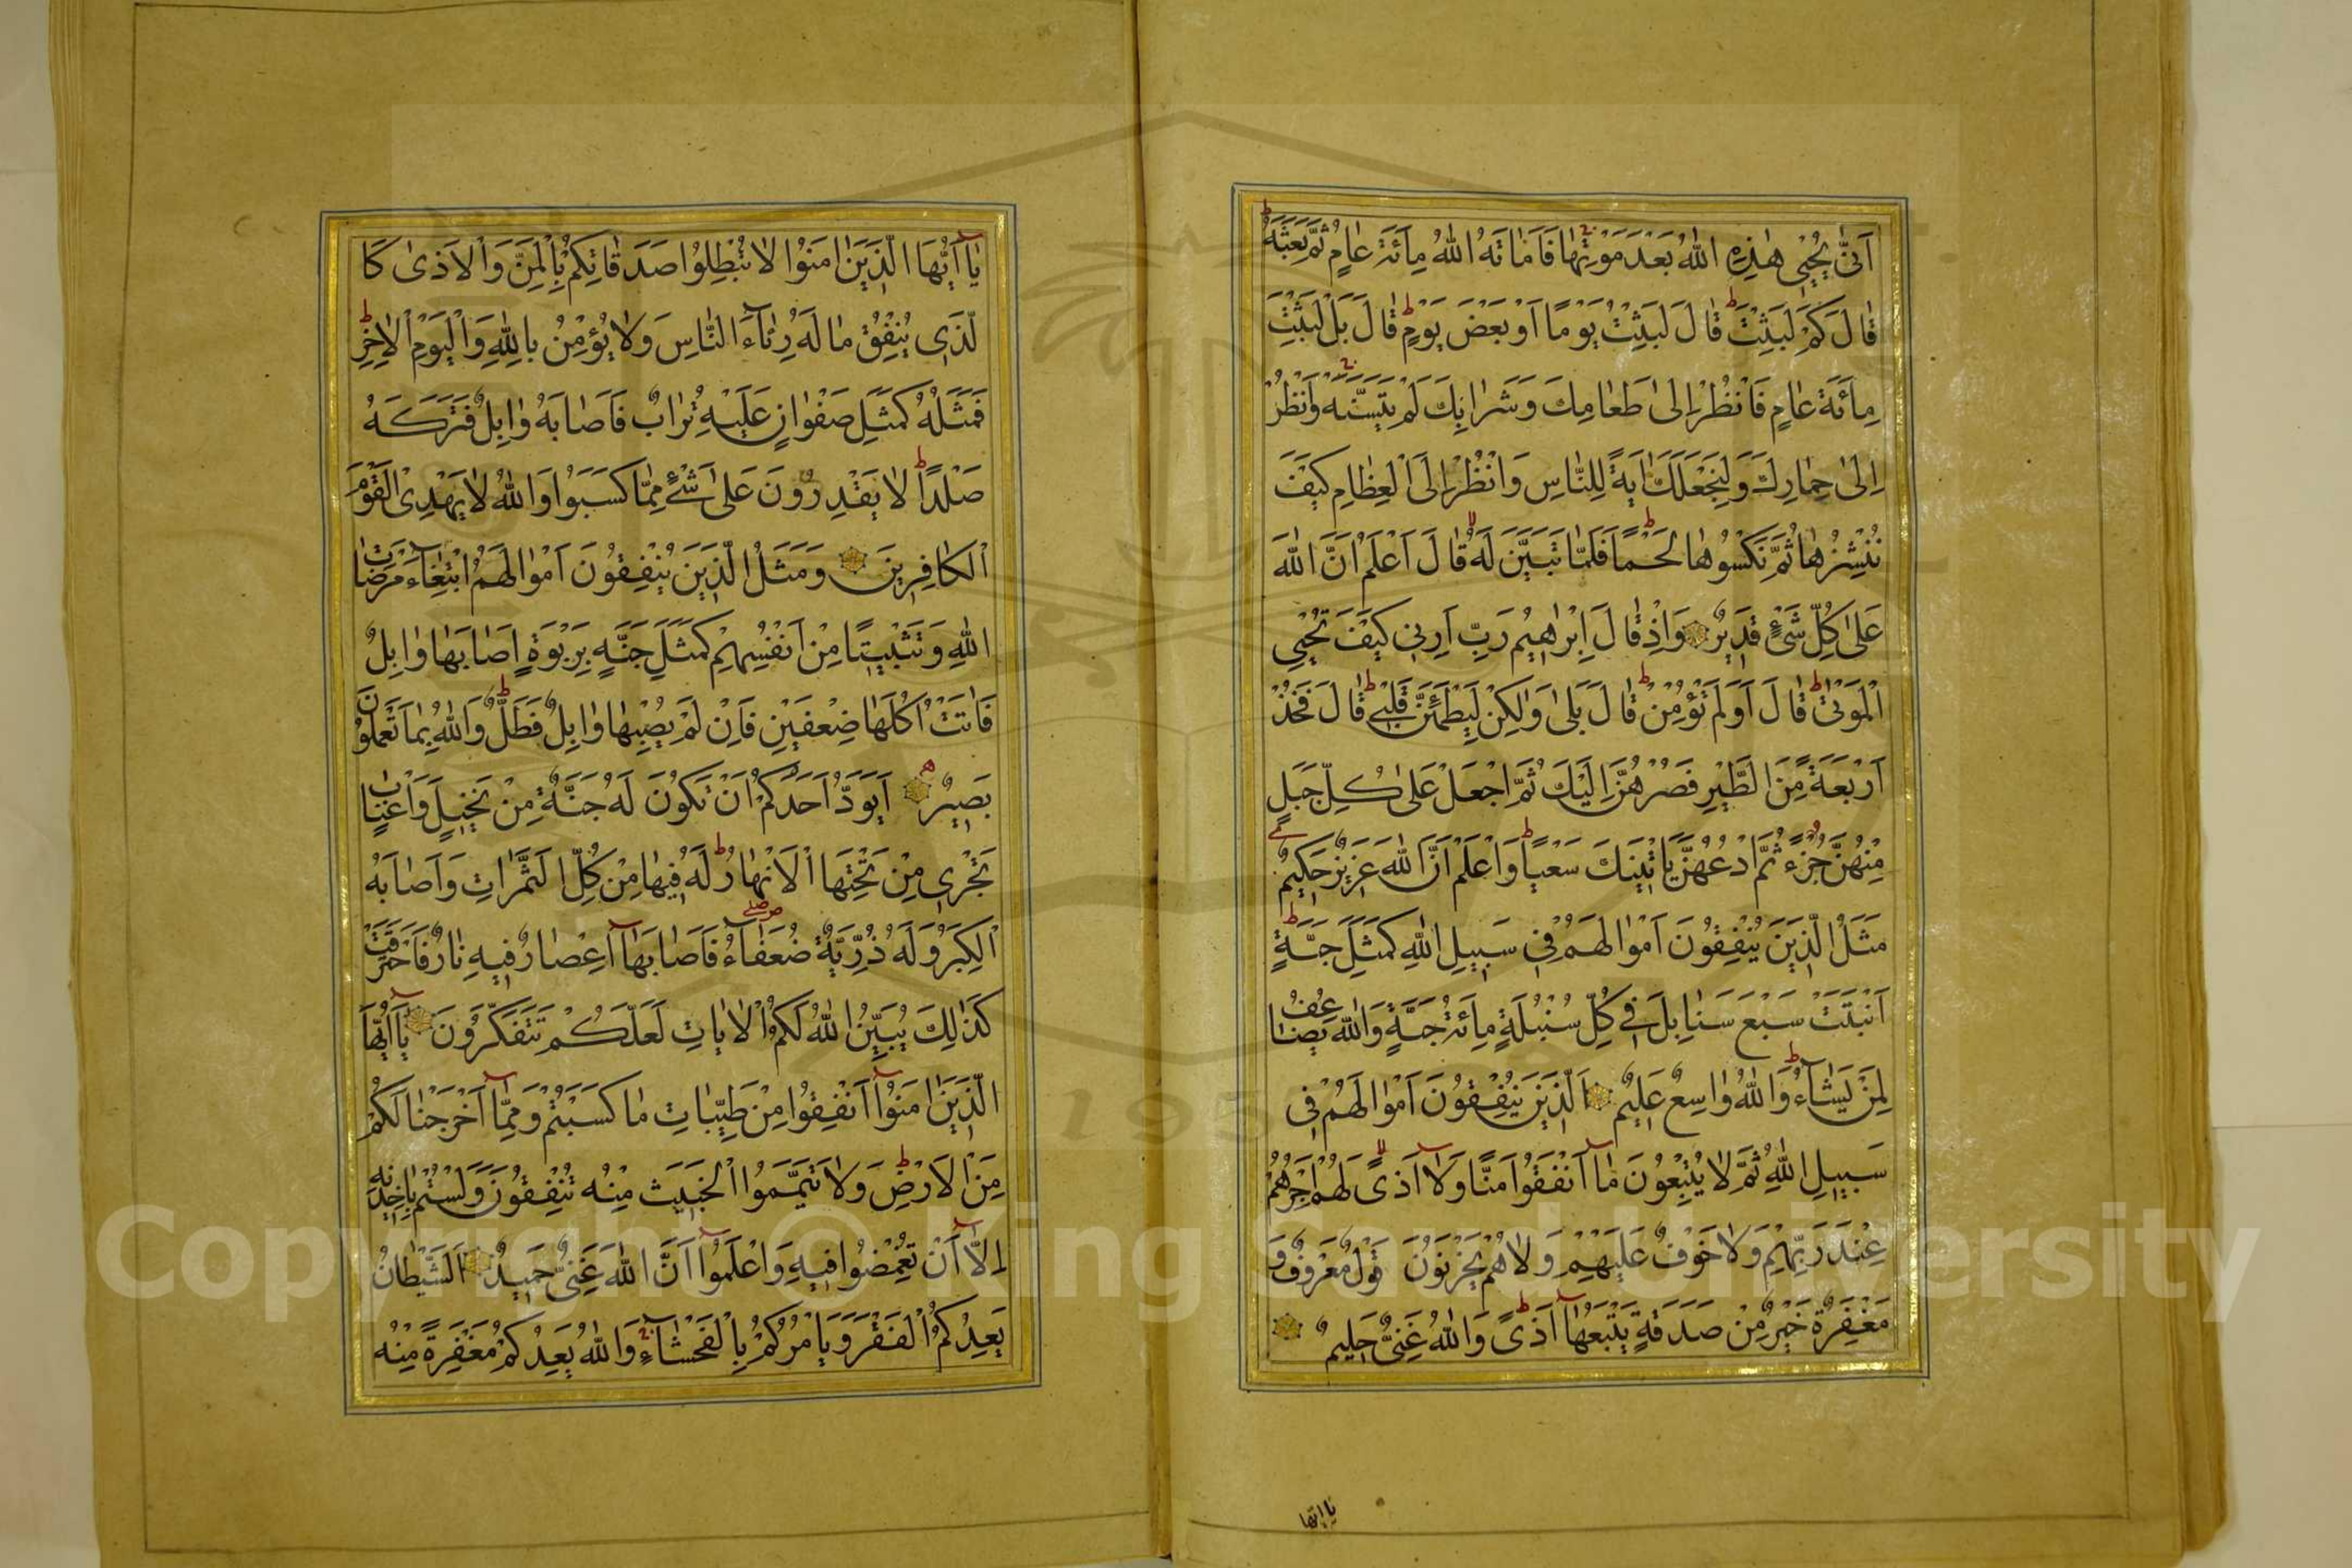 اَنّٰى يُحْيٖى هٰذِهِ اللّٰهُ بَعْدَ مَوْتِهٰا فَاَمٰاتَهُ اللّٰهُ مِائَةَ عٰامٍ ثُمَّ بَعَثَهُ
قٰالَ كَمْ لَبِثْتَ قٰالَ لَبِثْتُ يَوْمًا اَوْ بَعْضَ يَوْمٍ قٰالَ بَلْ لَبِثْتَ
مِائَةَ عٰامٍ فَانْظُرْ اِلىٰ طَعٰامِكَ وَشَرٰابِكَ لَمْ يَتَسَنَّهْ وَانْظُرْ
اِلىٰ حِمٰارِكَ وَلِنَجْعَلَكَ اٰيَةً لِلنّٰاسِ وَانْظُرْ اِلَى الْعِظٰامِ كَيْفَ
نُنْشِزُهٰا ثُمَّ نَكْسُوهٰا لَحْمًا فَلَمّٰا تَبَيَّنَ لَهُ قٰالَ اَعْلَمُ اَنَّ اللّٰهَ
عَلىٰ كُلِّ شَىْءٍ قَدٖيرٌ وَاِذْ قٰالَ اِبْرٰاهٖيمُ رَبِّ اَرِنٖى كَيْفَ تُحْيِى
الْمَوْتىٰ قٰالَ اَوَلَمْ تُؤْمِنْ قٰالَ بَلىٰ وَلٰكِنْ لِيَطْمَئِنَّ قَلْبٖى قٰالَ فَخُذْ
اَرْبَعَةً مِنَ الطَّيْرِ فَصُرْهُنَّ اِلَيْكَ ثُمَّ اجْعَلْ عَلىٰ كُلِّ جَبَلٍ
مِنْهُنَّ جُزْءً ثُمَّ ادْعُهُنَّ يَاْتٖينَكَ سَعْيًا وَاعْلَمْ اَنَّ اللّٰهَ عَزٖيزٌ حَكٖيمٌ
مَثَلُ الَّذٖينَ يُنْفِقُونَ اَمْوٰالَهُمْ فٖى سَبٖيلِ اللّٰهِ كَمَثَلِ حَبَّةٍ
اَنْبَتَتْ سَبْعَ سَنٰابِلَ فٖى كُلِّ سُنْبُلَةٍ مِائَةُ حَبَّةٍ وَاللّٰهُ يُضٰاعِفُ
لِمَنْ يَشٰاءُ وَاللّٰهُ وٰاسِعٌ عَلٖيمٌ اَلَّذٖينَ يُنْفِقُونَ اَمْوٰالَهُمْ فٖى
سَبٖيلِ اللّٰهِ ثُمَّ لٰا يُتْبِعُونَ مٰا اَنْفَقُوا مَنًّا وَلٰا اَذىً لَهُمْ اَجْرُهُمْ
عِنْدَ رَبِّهِمْ وَلٰا خَوْفٌ عَلَيْهِمْ وَلٰا هُمْ يَحْزَنُونَ قَوْلٌ مَعْرُوفٌ وَ
مَغْفِرَةٌ خَيْرٌ مِنْ صَدَقَةٍ يَتْبَعُهٰا اَذىً وَاللّٰهُ غَنِىٌّ حَلٖيمٌ
يا ايها
يٰا اَيُّهَا الَّذٖينَ اٰمَنُوا لٰا تُبْطِلُوا صَدَقٰاتِكُمْ بِالْمَنِّ وَالْاَذىٰ كَا
لَّذٖى يُنْفِقُ مٰا لَهُ رِئٰاءَ النّٰاسِ وَلٰا يُؤْمِنُ بِاللّٰهِ وَالْيَوْمِ الْاٰخِرِ
فَمَثَلُهُ كَمَثَلِ صَفْوٰانٍ عَلَيْهِ تُرٰابٌ فَاَصٰابَهُ وٰابِلٌ فَتَرَكَهُ
صَلْدًا لٰا يَقْدِرُونَ عَلىٰ شَىْءٍ مِمّٰا كَسَبُوا وَاللّٰهُ لٰا يَهْدِى الْقَوْمَ
الْكٰافِرٖينَ وَمَثَلُ الَّذٖينَ يُنْفِقُونَ اَمْوٰالَهُمُ ابْتِغٰاءَ مَرْضٰاتِ
اللّٰهِ وَتَثْبٖيتًا مِنْ اَنْفُسِهِمْ كَمَثَلِ جَنَّةٍ بِرَبْوَةٍ اَصٰابَهٰا وٰابِلٌ
فَاٰتَتْ اُكُلَهٰا ضِعْفَيْنِ فَاِنْ لَمْ يُصِبْهٰا وٰابِلٌ فَطَلٌّ وَاللّٰهُ بِمٰا تَعْمَلُونَ
بَصٖيرٌ اَيَوَدُّ اَحَدُكُمْ اَنْ تَكُونَ لَهُ جَنَّةٌ مِنْ نَخٖيلٍ وَاَعْنٰابٍ
تَجْرٖى مِنْ تَحْتِهَا الْاَنْهٰارُ لَهُ فٖيهٰا مِنْ كُلِّ الثَّمَرٰاتِ وَاَصٰابَهُ
الْكِبَرُ وَلَهُ ذُرِّيَّةٌ ضُعَفٰاءُ فَاَصٰابَهٰا اِعْصٰارٌ فٖيهِ نٰارٌ فَاحْتَرَقَتْ
كَذٰلِكَ يُبَيِّنُ اللّٰهُ لَكُمُ الْاٰيٰاتِ لَعَلَّكُمْ تَتَفَكَّرُونَ يٰا اَيُّهَا
الَّذٖينَ اٰمَنُوا اَنْفِقُوا مِنْ طَيِّبٰاتِ مٰا كَسَبْتُمْ وَمِمّٰا اَخْرَجْنٰا لَكُمْ
مِنَ الْاَرْضِ وَلٰا تَيَمَّمُوا الْخَبٖيثَ مِنْهُ تُنْفِقُونَ وَلَسْتُمْ بِاٰخِذٖيهِ
اِلّٰا اَنْ تُغْمِضُوا فٖيهِ وَاعْلَمُوا اَنَّ اللّٰهَ غَنِىٌّ حَمٖيدٌ اَلشَّيْطٰانُ
يَعِدُكُمُ الْفَقْرَ وَيَاْمُرُكُمْ بِالْفَحْشٰاءِ وَاللّٰهُ يَعِدُكُمْ مَغْفِرَةً مِنْهُ
Copyright © King Saud University
195